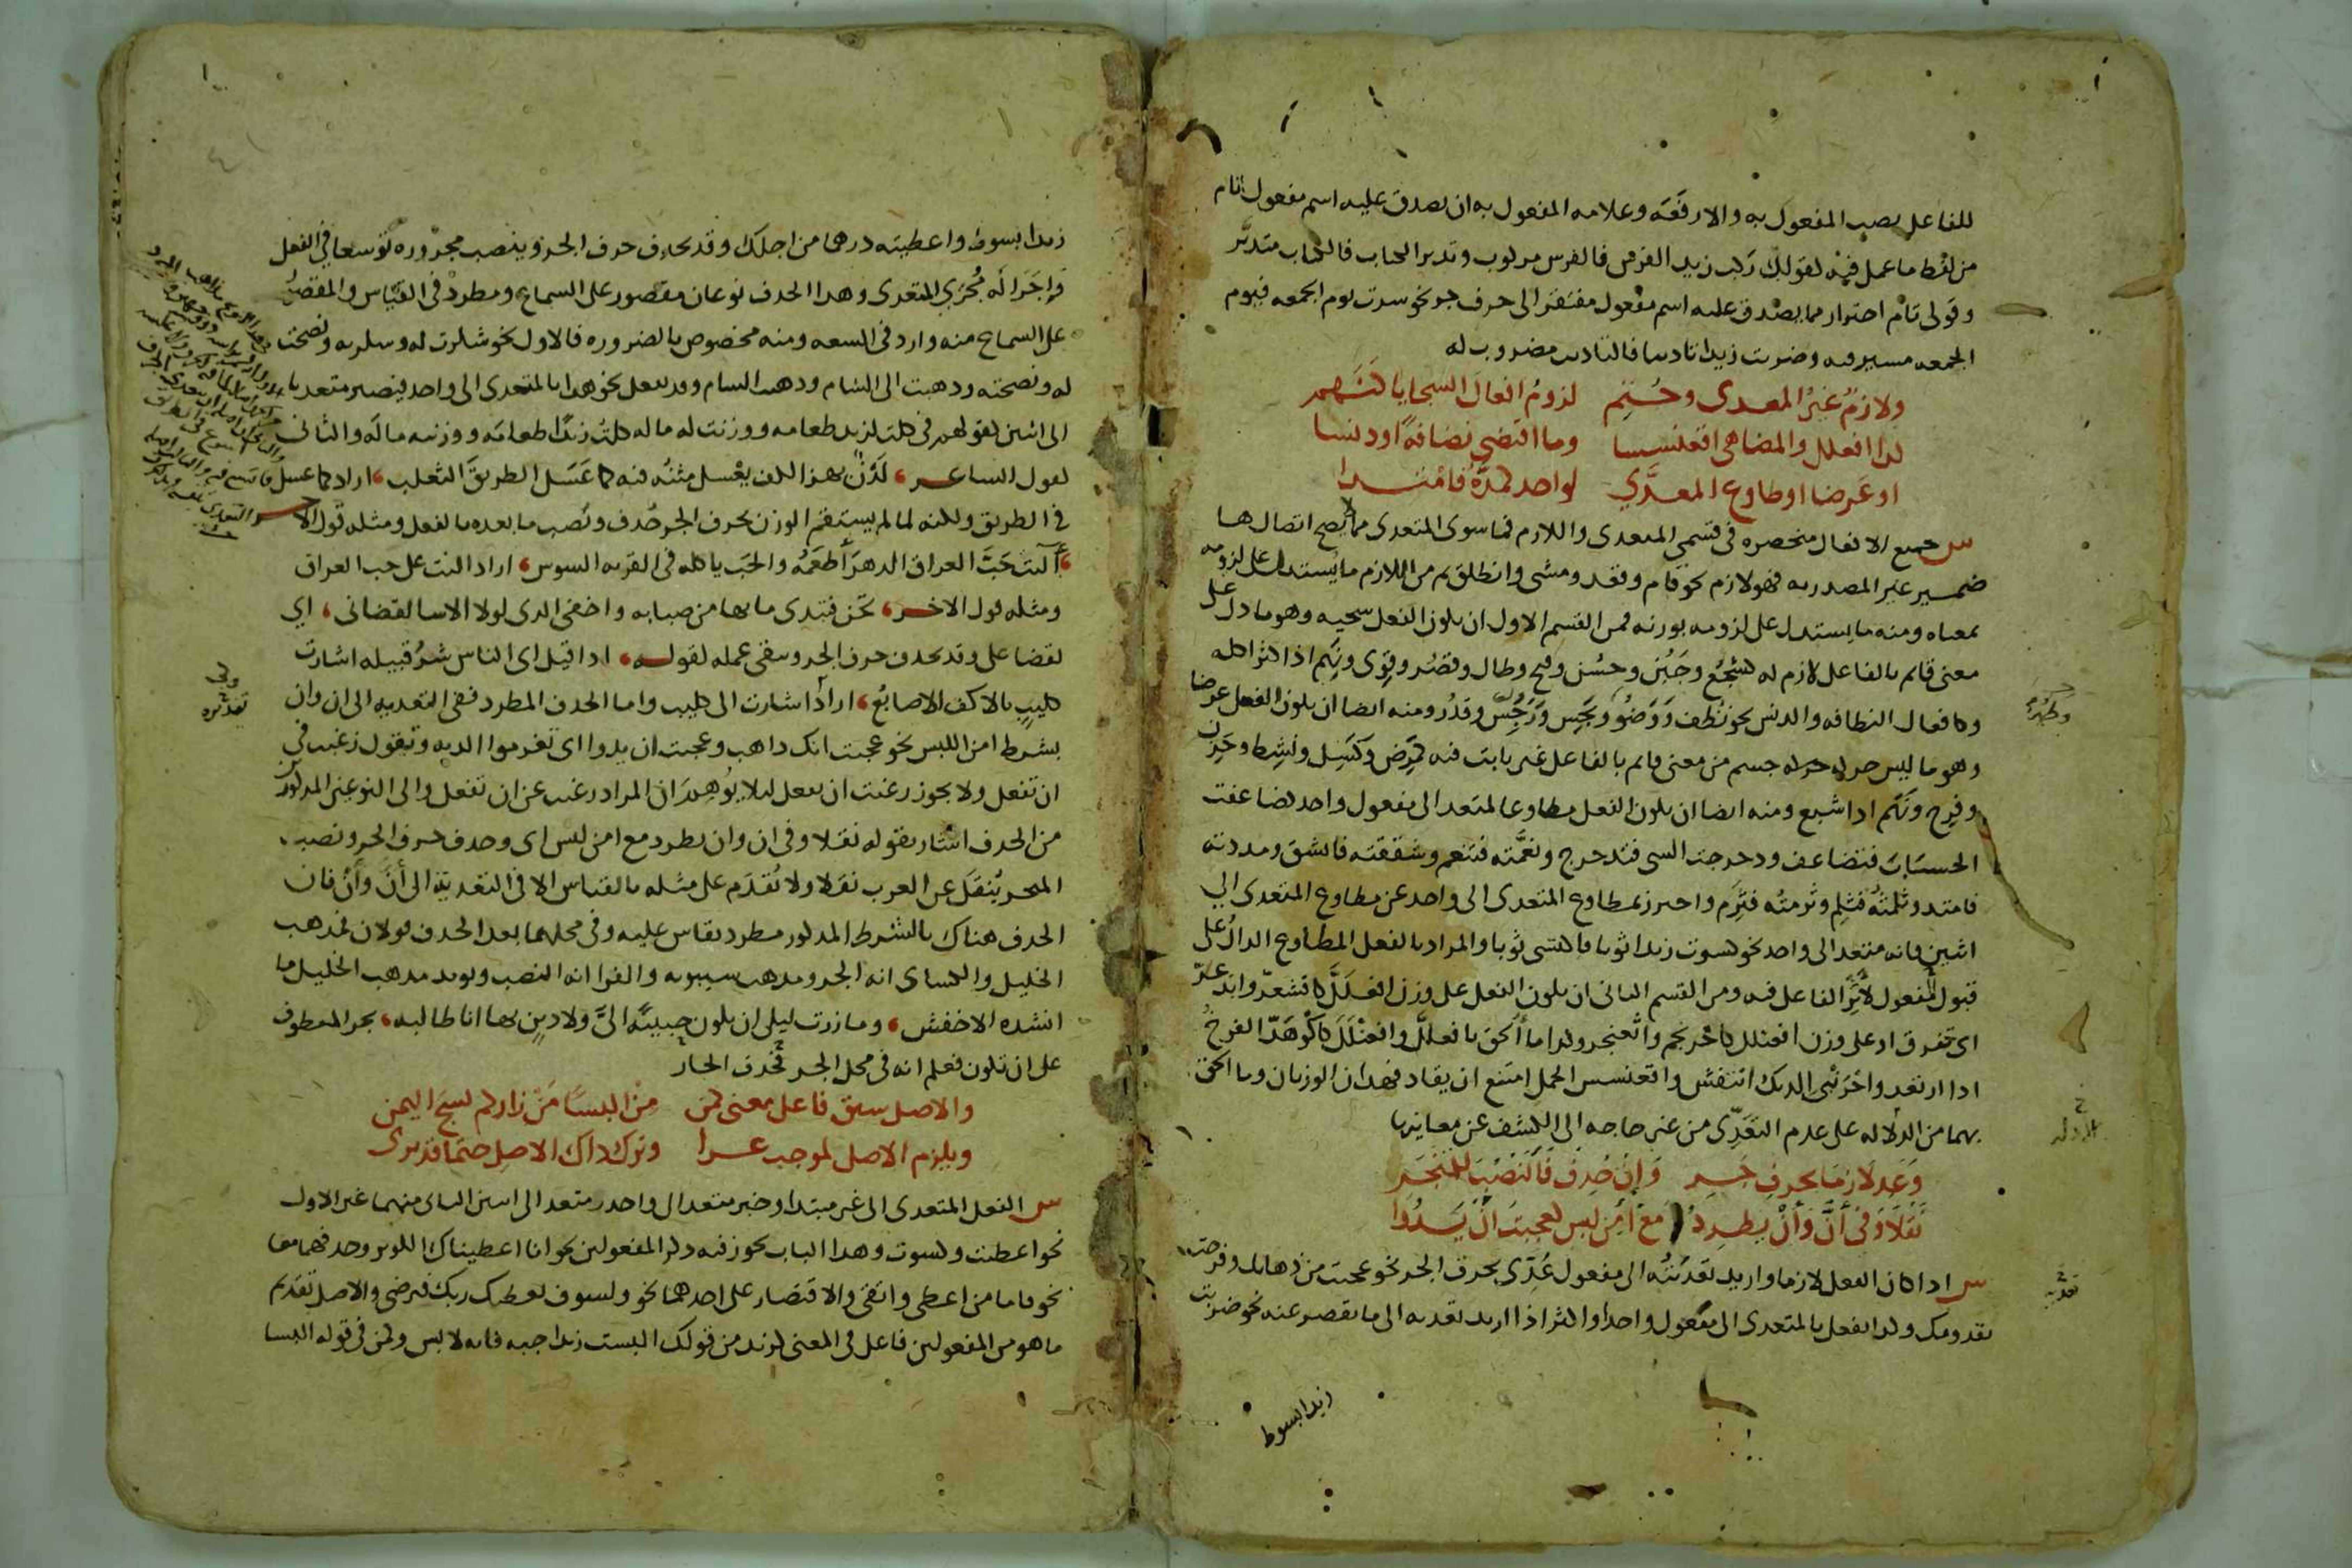 للفاعل نصب المفعول به والا رفعه وعلامه المفعول به ان يصدق عليه اسم مفعول تام
من لفظ ما عمل فيه كقولك ركب زيد الفرس فالفرس مركوب وتدبر الكتاب فالكتاب متدبر
وقولي تام احتراز مما يصدق عليه اسم مفعول مفتقر الى حرف جر نحو سرت يوم الجمعه فيوم
الجمعه مسير فيه وضربت زيدا تاديبا فالتاديب مضروب له
ولازم غير المعدى وحتم لزوم افعال السجايا كنهم
كذا افعلل والمضاهي اقعنسسا وما اقتضى نضافة او دنسا
او عرضا او طاوع المعدى لواحد كمده فامتدا
س جميع الافعال منحصره في قسمي المتعدى واللازم فما سوى المتعدى مما لا يصح اتصالها
ضمير غير المصدر به فهو لازم نحو قام وقعد ومشى وانطلق ثم من اللازم ما يستدل على لزومه
بمعناه ومنه ما يستدل على لزومه بوزنه فمن القسم الاول ان يكون الفعل سجيه وهو ما دل على
معنى قائم بالفاعل لازم له كشجع وجبن وحسن وقبح وطال وقصر وقوي ونهم اذا كثر اكله
وكافعال النظافه والدنس نحو نظف ووضؤ ونجس ورجس وقذر ومنه ايضا ان يكون الفعل عرضا
وهو ما ليس حركه جسم من معنى قائم بالفاعل غير ثابت فيه كمرض وكسل ونشط وحزن
وفرح ونهم اذا شبع ومنه ايضا ان يكون الفعل مطاوعا لمتعد الى مفعول واحد كضاعفت
الحساب فتضاعف ودحرجت الشي فتدحرج ونعمته فتنعم وشققته فانشق ومددته
فامتد وثلمته فثلم وثرمته فثرم واحترز بمطاوع المتعدى الى واحد عن مطاوع المتعدى الى
اثنين فانه متعد الى واحد نحو كسوت زيدا ثوبا فاكتسى ثوبا والمراد بالفعل المطاوع الدال على
قبول المفعول لاثر الفاعل فيه ومن القسم الثاني ان يكون الفعل على وزن افعلل كاقشعر وابذعر
اى تفرق او على وزن افعنلل كاحرنجم واثعنجر وكذا ما ألحق بافعلل وافعنلل كاكوهد الفرخ
اذا ارتعد واحرنبى الديك انتفش واقعنسس الجمل امتنع ان يقاد فهذان الوزنان وما الحق
بهما من الدلاله على عدم التعدي من غير حاجه الى الكشف عن معانيها
وعد لازما بحرف جر وان حذف فالنصب للمنجر
نقلا وفى أنّ وأن يطرد مع أمن لبس كعجبت ان يدوا
س اذا كان الفعل لازما واريد تعديته الى مفعول عدّي بحرف الجر نحو عجبت من ذهابك وفرحت
بقدومك وكذا يفعل بالمتعدى الى مفعول واحد او اكثر اذا اريد تعديه الى ما يقصر عنه نحو ضربت
زيدا بسوط
زيدا بسوط واعطيته درهما من اجلك وقد يحذف حرف الجر وينصب مجروره توسعا في الفعل
واجراله مجرى المتعدى وهذا الحذف نوعان مقصور على السماع ومطرد في القياس والمقصور
على السماع منه وارد في السعه ومنه مخصوص بالضروره فالاول نحو شكرت له وشكرته ونصحت
له ونصحته وذهبت الى الشام وذهبت الشام وقد يفعل نحو هذا بالمتعدى الى واحد فيصير متعديا
الى اثنين كقولهم في كلت لزيد طعامه ووزنت له ماله كلت زيدا طعامه ووزنته ماله والثاني
كقول الشاعر لدن بهز الكف يعسل متنه فيه كما عسل الطريق الثعلب اراد كما عسل
في الطريق ولكنه لما لم يستقم الوزن بحرف الجر حذف ونصب ما بعده بالفعل ومثله قول الاخر
آليت حب العراق الدهر أطعمه والحب ياكله في القريه السوس اراد اليت على حب العراق
ومثله قول الاخر تحن فتبدى ما بها من صبابه واخفي الذى لولا الاسا لقضاني اي
لقضا على وقد يحذف حرف الجر ويبقى عمله كقوله اذا قيل اى الناس شر قبيله اشارت
كليب بالاكف الاصابع اراد اشارت الى كليب واما الحذف المطرد ففي التعديه الى ان وان
بشرط امن اللبس نحو عجبت انك ذاهب وعجبت ان يدوا اى تغرموا الديه وتقول رغبت في
ان تفعل ولا يجوز رغبت ان تفعل لئلا يوهم ان المراد رغبت عن ان تفعل والى النوعين المذكورين
من الحذف اشار بقوله نقلا وفى ان وان يطرد مع امن لبس اى وحذف حرف الجر ونصب
المنجر يُنقل عن العرب نقلا ولا يُقدم على مثله بالقياس الا في التعدية الى أنّ وأن فان
الحذف هناك بالشرط المذكور مطرد يقاس عليه وفي محلهما بعد الحذف قولان فمذهب
الخليل والكساى انه الجر ومذهب سيبويه والفرا انه النصب ويويد مذهب الخليل ما
انشده الاخفش وما زرت ليلى ان تكون حبيبة اليّ ولا دين بها انا طالبه بجر المعطوف
على ان تكون فعلم انه في محل الجر فحذف الجار
والاصل سبق فاعل معنى كمن من البسًا من زاركم نسج اليمن
ويلزم الاصل لموجب عرا وترك ذاك الاصل حتما قد يرى
س الفعل المتعدى الى غير مبتدا وخبر متعد الى واحد ومتعد الى اثنين الثاني منهما غير الاول
نحو اعطيت وكسوت وهذا الباب يجوز فيه ذكر المفعولين نحو انا اعطيناك الكوثر وحذفهما معا
نحو فاما من اعطى واتقى والاقتصار على احدهما نحو ولسوف يعطيك ربك فترضى والاصل تقديم
ما هو من المفعولين فاعل في المعنى كزيد من قولك البست زيدا جبه فانه لابس وكمن في قوله البسا